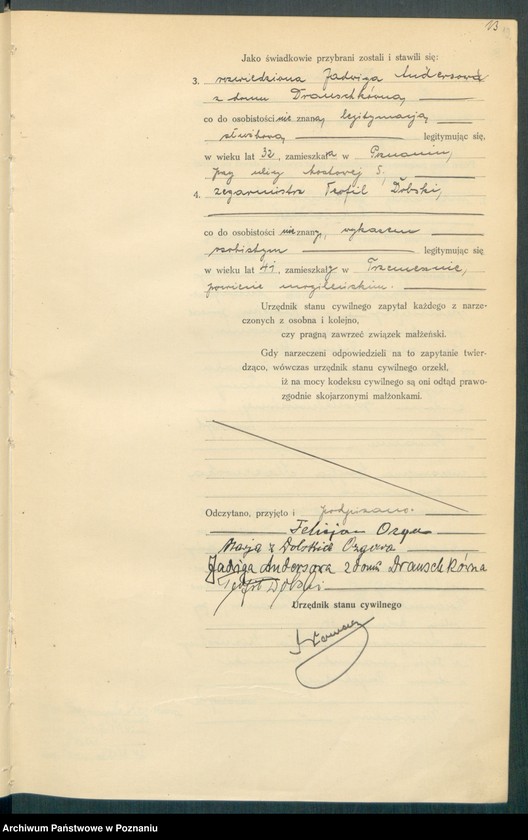 13
Jako świadkowie przybrani zostali i stawili się:
3. rozwiedziona Jadwiga Andersowa
z domu Drauschkówna,
co do osobistości nie znana, legitymacją
służbową legitymując się,
w wieku lat 32, zamieszkała w Poznaniu,
przy ulicy Mostowej 5,
4. zegarmistrz Teofil Dolski,
co do osobistości nie znany, wykazem
osobistym legitymując się
w wieku lat 41, zamieszkały w Trzemesznie,
powiecie mogileńskim.
Urzędnik stanu cywilnego zapytał każdego z narze-
czonych z osobna i kolejno,
czy pragną zawrzeć związek małżeński.
Gdy narzeczeni odpowiedzieli na to zapytanie twier-
dząco, wówczas urzędnik stanu cywilnego orzekł,
iż na mocy kodeksu cywilnego są oni odtąd prawo-
zgodnie skojarzonymi małżonkami.
Odczytano, przyjęto i podpisano.
Felicjan Ozga
Maria z Dolskich Ozgowa
Jadwiga Andersowa z domu Drauschkówna
Teofil Dolski
Urzędnik stanu cywilnego
Archiwum Państwowe w Poznaniu